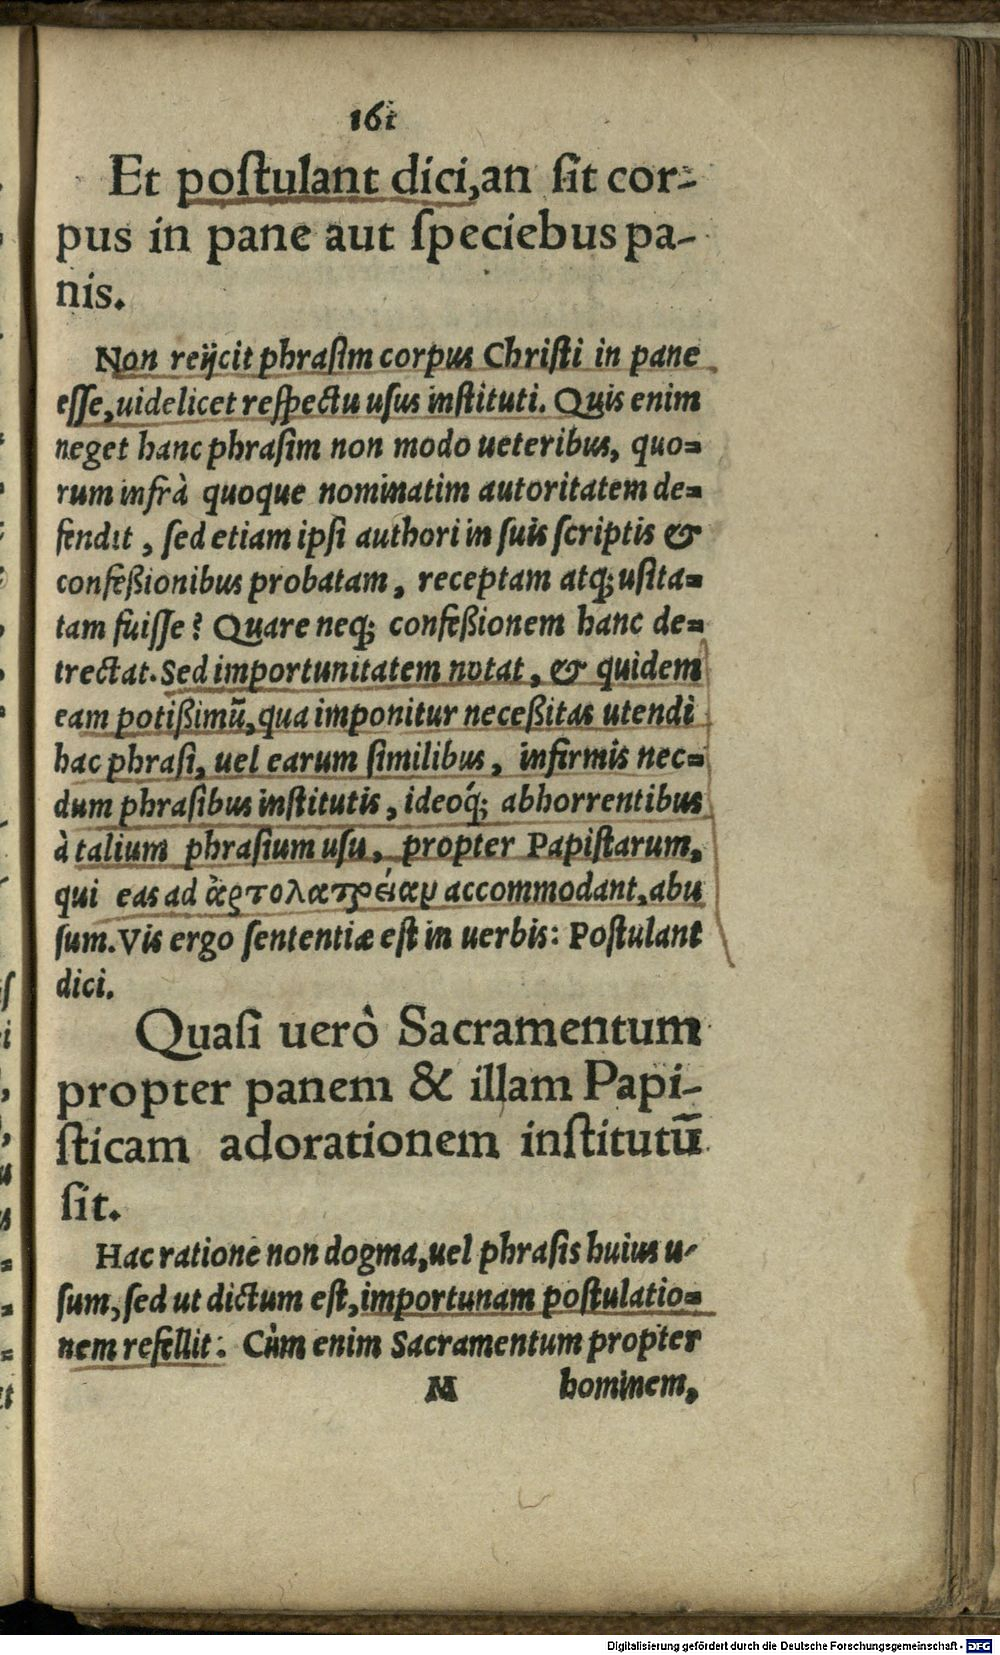 161
Et poſtulant dici, an ſit cor-
pus in pane aut ſpeciebus pa-
nis.
Non reijcit phraſim corpus Chriſti in pane
eſſe, uidelicet reſpectu uſus inſtituti. Quis enim
neget hanc phraſim non modo ueteribus, quo=
rum infrà quoque nominatim autoritatem de=
fendit, ſed etiam ipſi authori in ſuis ſcriptis &
confeßionibus probatam, receptam atq; uſita=
tam fuiſſe? Quare neq; confeßionem hanc de=
trectat. Sed importunitatem notat, & quidem
eam potißimū, qua imponitur neceßitas utendi
hac phraſi, uel earum ſimilibus, infirmis nec=
dum phraſibus inſtitutis, ideoq́; abhorrentibus
à talium phraſium uſu, propter Papiſtarum,
qui eas ad ἀρτολατρείαν accommodant, abu
ſum. Vis ergo ſententiæ eſt in uerbis: Poſtulant
dici.
Quaſi uerò Sacramentum
propter panem & illam Papi-
ſticam adorationem inſtitutū
ſit.
Hac ratione non dogma, uel phraſis huius u-
ſum, ſed ut dictum eſt, importunam poſtulatio=
nem refellit: Cùm enim Sacramentum propter
M hominem,
Digitalisierung gefördert durch die Deutsche Forschungsgemeinschaft - DFG